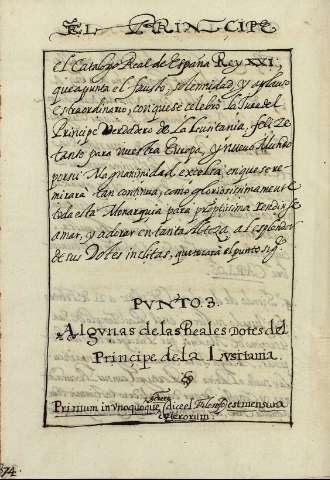 EL PRINCIPE
el Catalogo Real de España Rey XXI,
que apunta el fausto, solemnidad, y aplauso
extraordinario, con que se celebrò la Jura del
Principe verdadero de la Lusitania, feliz e
tanto para nuestra Europa, y nuevo Mundo
por su Magnanimidad excelsa, en que se re
mirarà tan continua, como gloriosissimamente
toda esta Monarquia para promptissima rendirse
amar, y adorar en tanta Alteza, al esplendor
de sus Dotes inclitas, que tocarà el punto sig.te
PVNTO. 3.
Algunas de las Reales Dotes del
Principe de la Lusitania.
Primum in vnoquoque genere (dice el Filosofo) est mensura
ceterorum.
874.